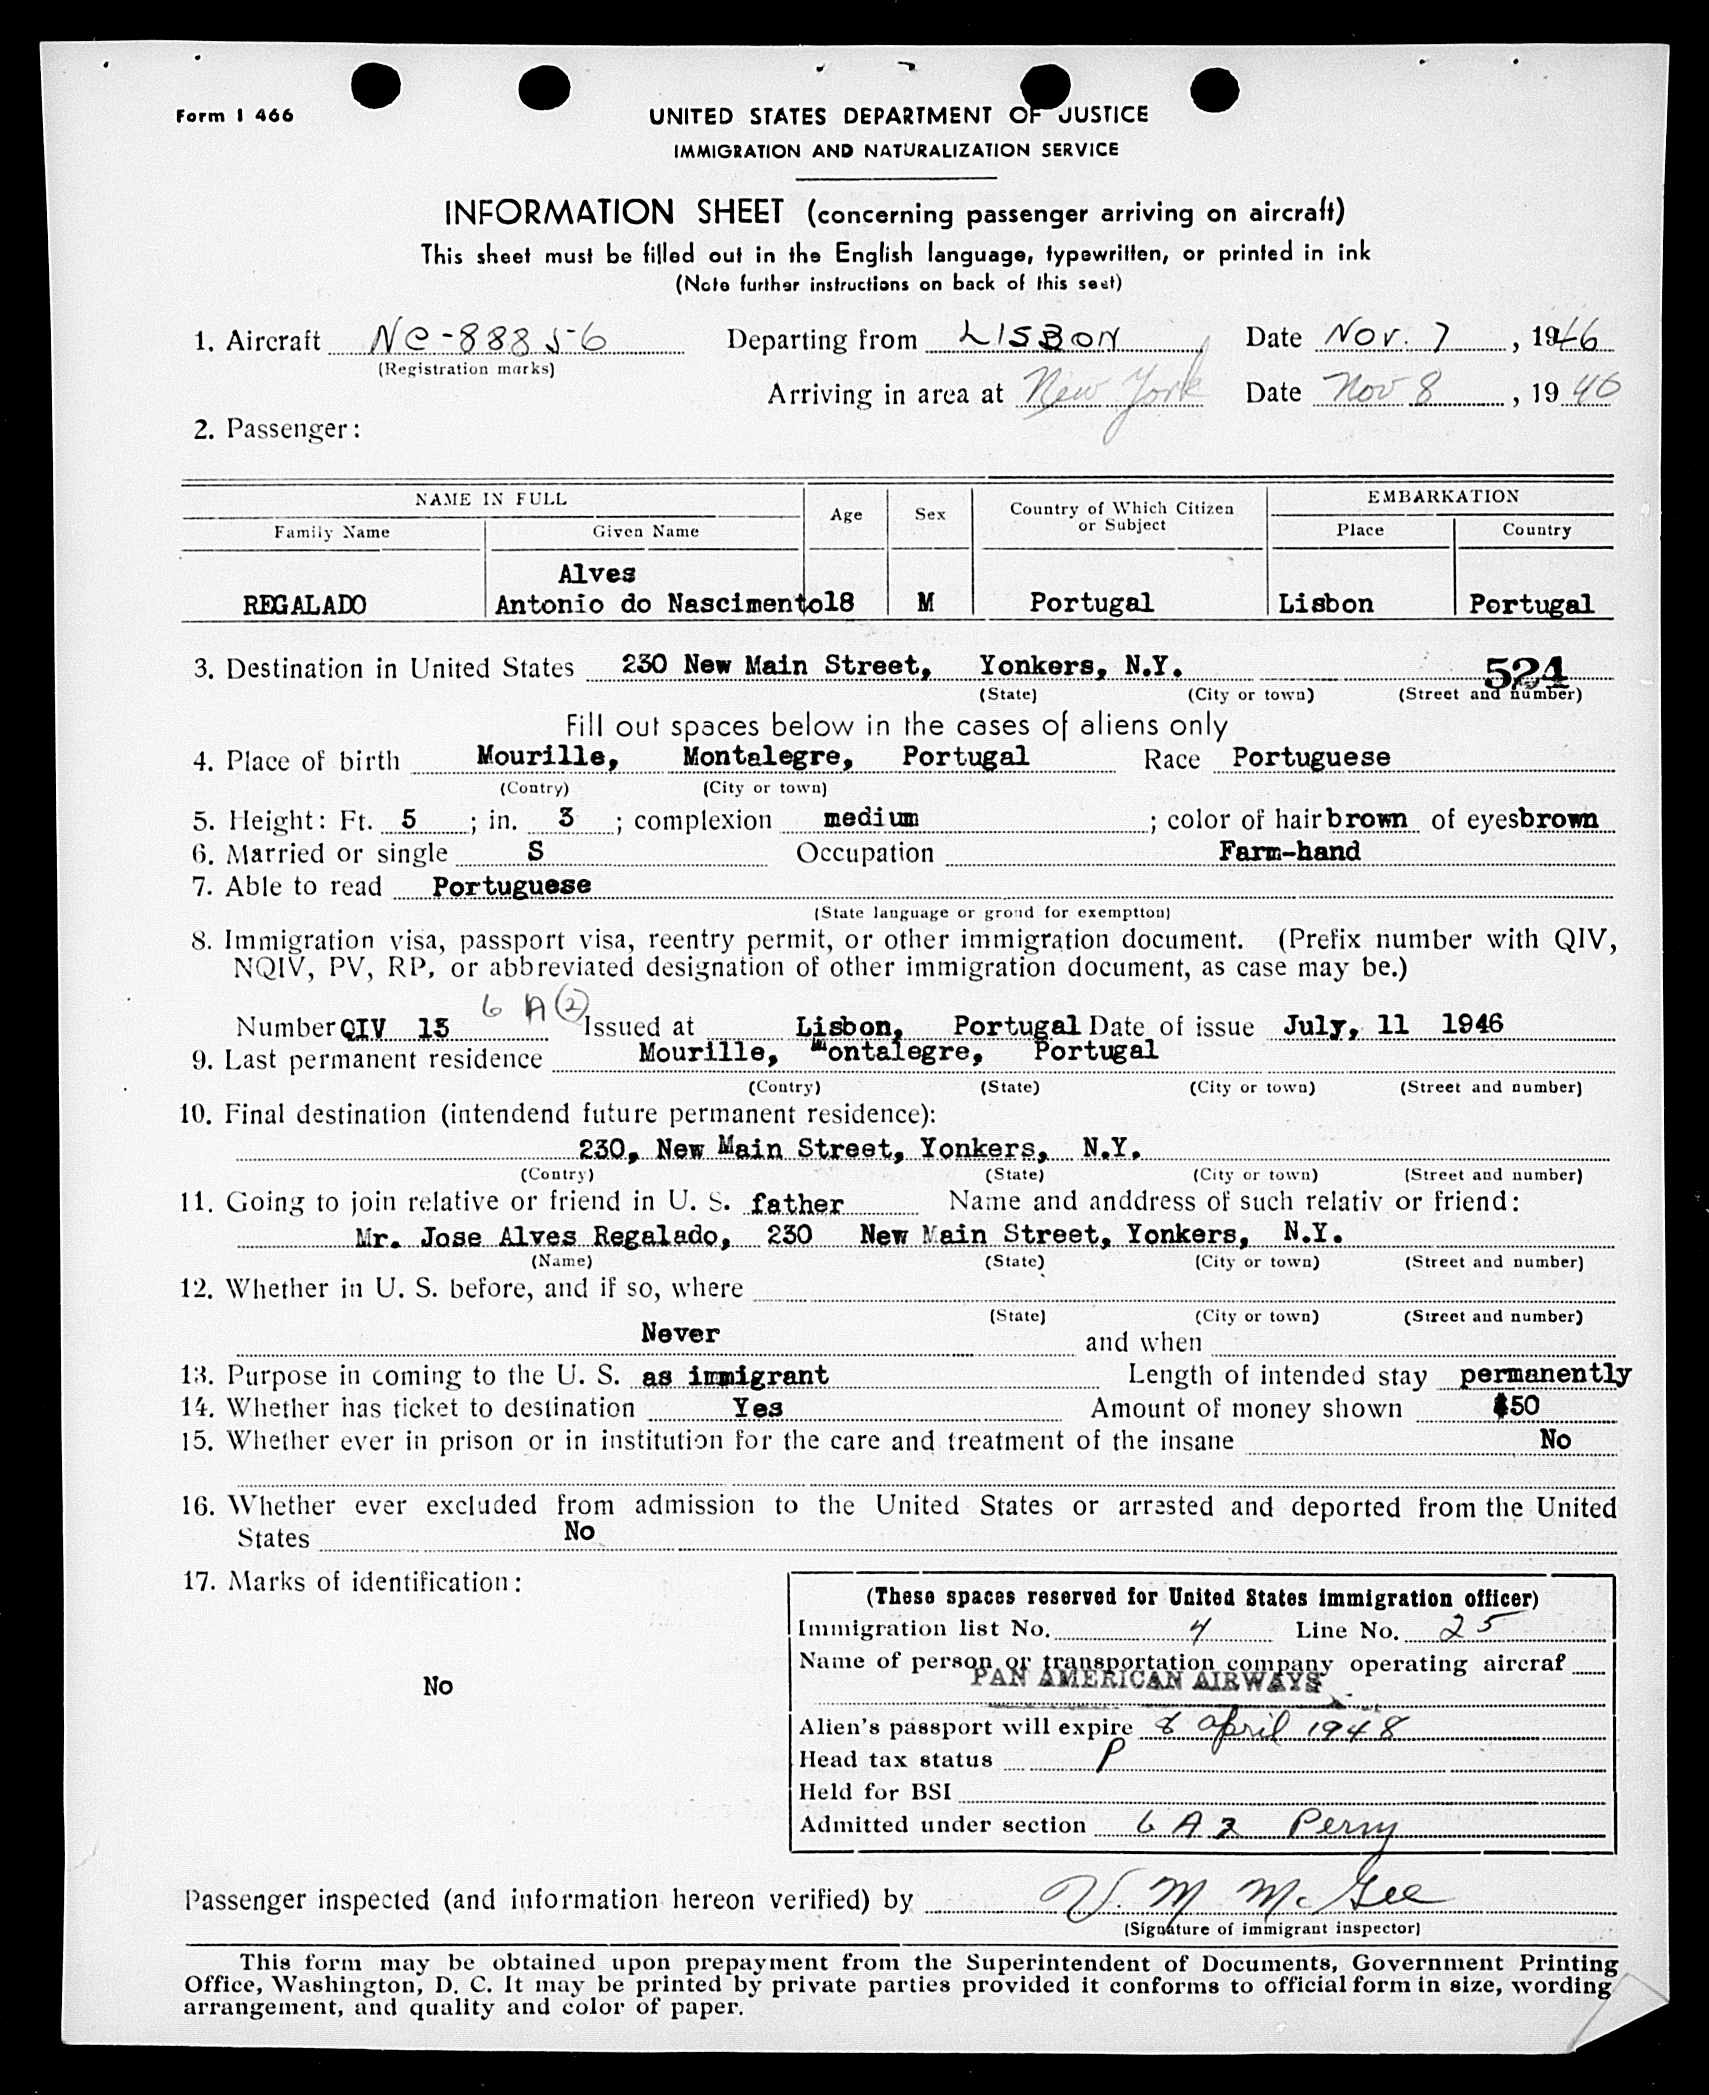 Form I 466
UNITED STATES DEPARTMENT OF JUSTICE
IMMIGRATION AND NATURALIZATION SERVICE
INFORMATION SHEET (concerning passenger arriving on aircraft)
This sheet must be filled out in the English language, typewritten, or printed in ink
(Note further instructions on back of this seet)
1. Aircraft NC-88856 Departing from LISBON Date Nov. 7, 1946
(Registration marks)
Arriving in area at New York Date Nov 8, 1946
2. Passenger:
NAME IN FULL Age Sex Country of Which Citizen or Subject EMBARKATION
Family Name Given Name Place Country
Alves
REGALADO Antonio do Nascimento 18 M Portugal Lisbon Portugal
3. Destination in United States 230 New Main Street, Yonkers, N.Y. 524
(State) (City or town) (Street and number)
Fill out spaces below in the cases of aliens only
4. Place of birth Mourille, Montalegre, Portugal Race Portuguese
(Contry) (City or town)
5. Height: Ft. 5; in. 3; complexion medium; color of hair brown of eyes brown
6. Married or single S Occupation Farm-hand
7. Able to read Portuguese
(State language or grond for exemptton)
8. Immigration visa, passport visa, reentry permit, or other immigration document. (Prefix number with QIV,
NQIV, PV, RP, or abbreviated designation of other immigration document, as case may be.)
6 A (2)
Number QIV 13 Issued at Lisbon, Portugal Date of issue July, 11 1946
9. Last permanent residence Mourille, Montalegre, Portugal
(Contry) (State) (City or town) (Street and number)
10. Final destination (intendend future permanent residence):
230, New Main Street, Yonkers, N.Y.
(Contry) (State) (City or town) (Street and number)
11. Going to join relative or friend in U. S. father Name and anddress of such relativ or friend:
Mr. Jose Alves Regalado, 230 New Main Street, Yonkers, N.Y.
(Name) (State) (City or town) (Street and number)
12. Whether in U. S. before, and if so, where
(State) (City or town) (Street and number)
Never and when
13. Purpose in coming to the U. S. as immigrant Length of intended stay permanently
14. Whether has ticket to destination Yes Amount of money shown $50
15. Whether ever in prison or in institution for the care and treatment of the insane No
16. Whether ever excluded from admission to the United States or arrested and deported from the United
States No
17. Marks of identification:
No
(These spaces reserved for United States immigration officer)
Immigration list No. 4 Line No. 25
Name of person or transportation company operating aircraf
PAN AMERICAN AIRWAYS
Alien's passport will expire 8 april 1948
Head tax status P
Held for BSI
Admitted under section 6 A 2 Perry
Passenger inspected (and information hereon verified) by V. M McGee
(Signature of immigrant inspector)
This form may be obtained upon prepayment from the Superintendent of Documents, Government Printing
Office, Washington, D. C. It may be printed by private parties provided it conforms to official form in size, wording
arrangement, and quality and color of paper.